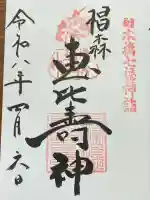 日本橋七福神詣
椙森
恵比寿神
令和八年四月六日